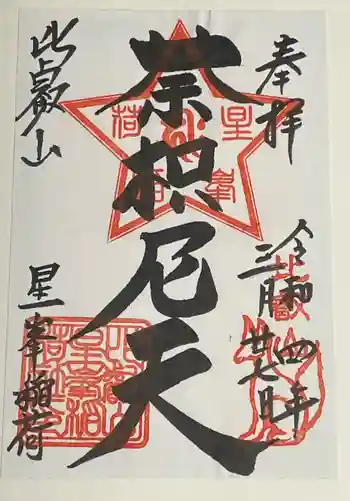 奉拝
令和四年
三月廿七日
荼枳尼天
比叡山
星峯稲荷